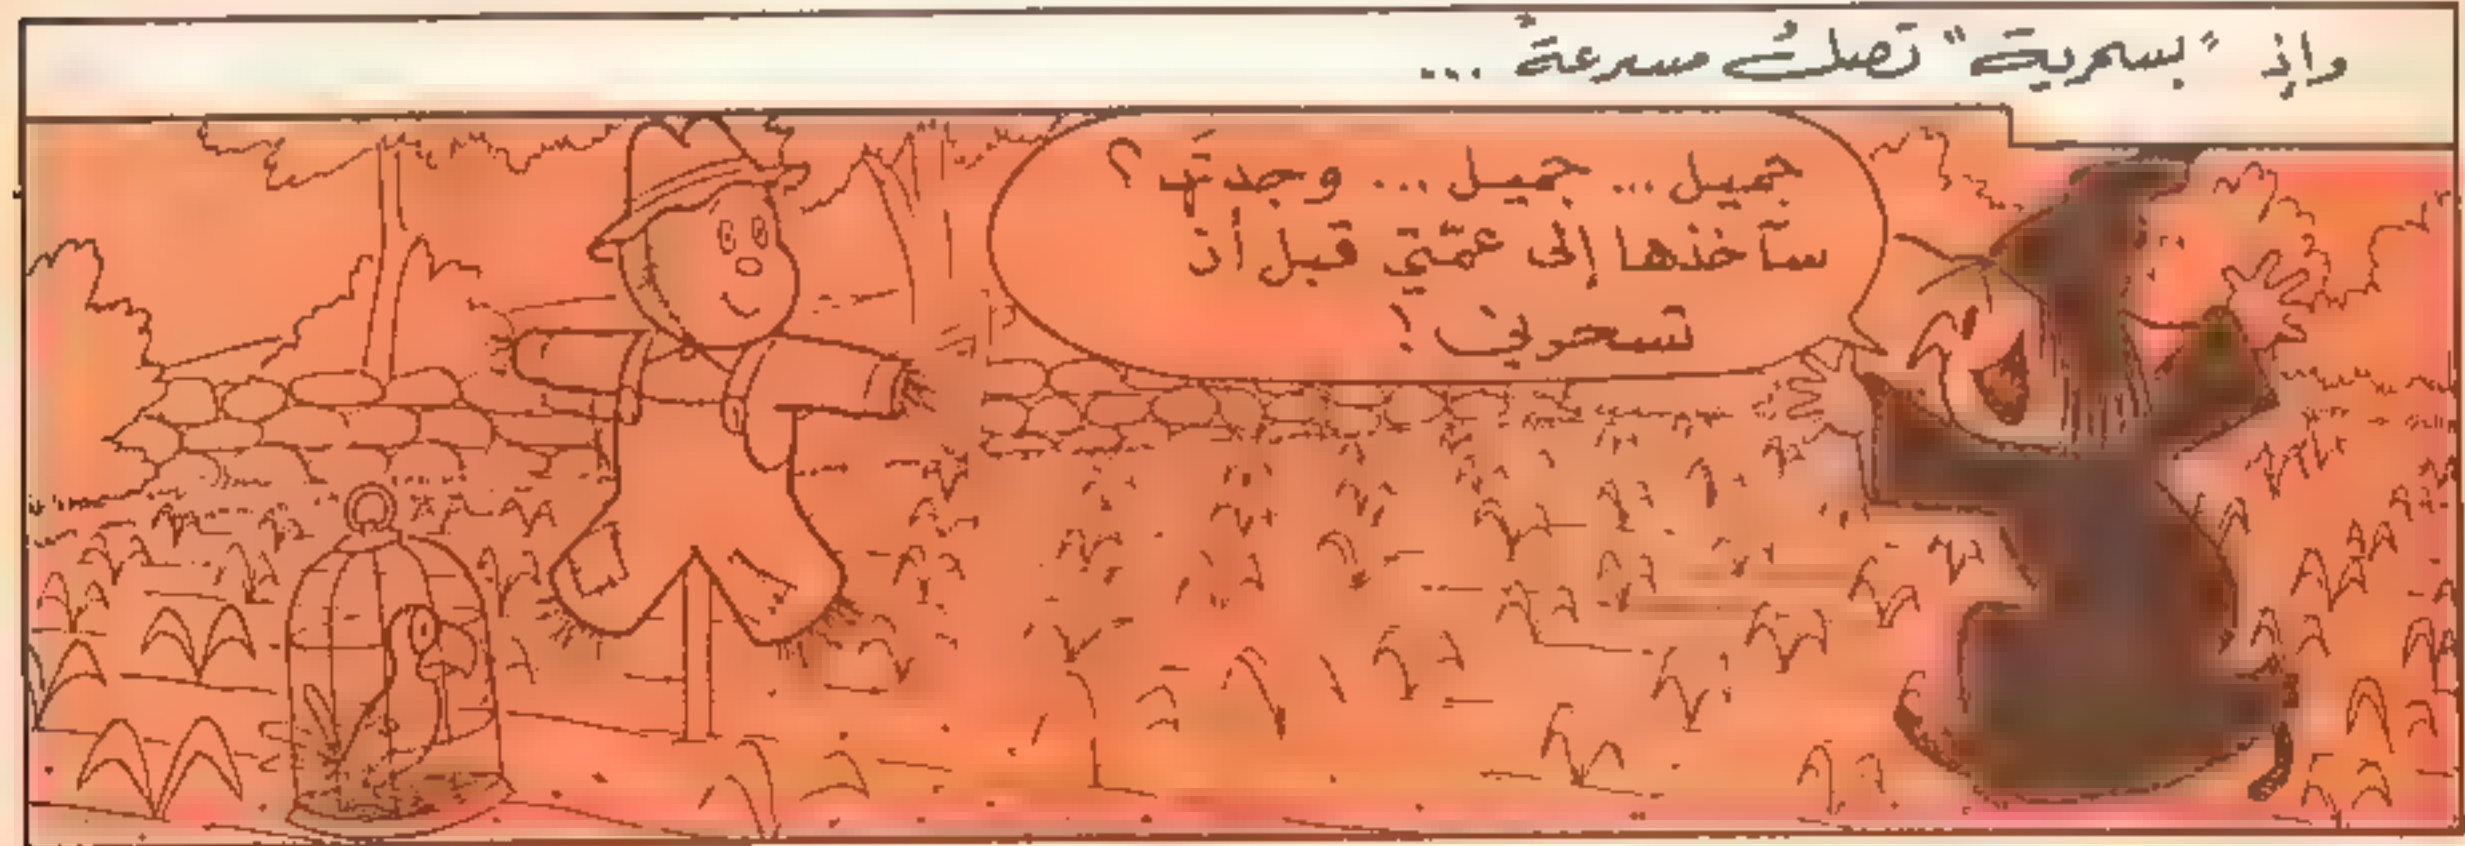 وإذ "بسحرية" تصلُ مسرعةً ...
جميل ... جميل ... وجدتَها ؟
سآخذها إلى عمّتي قبل أن
تسحرني !